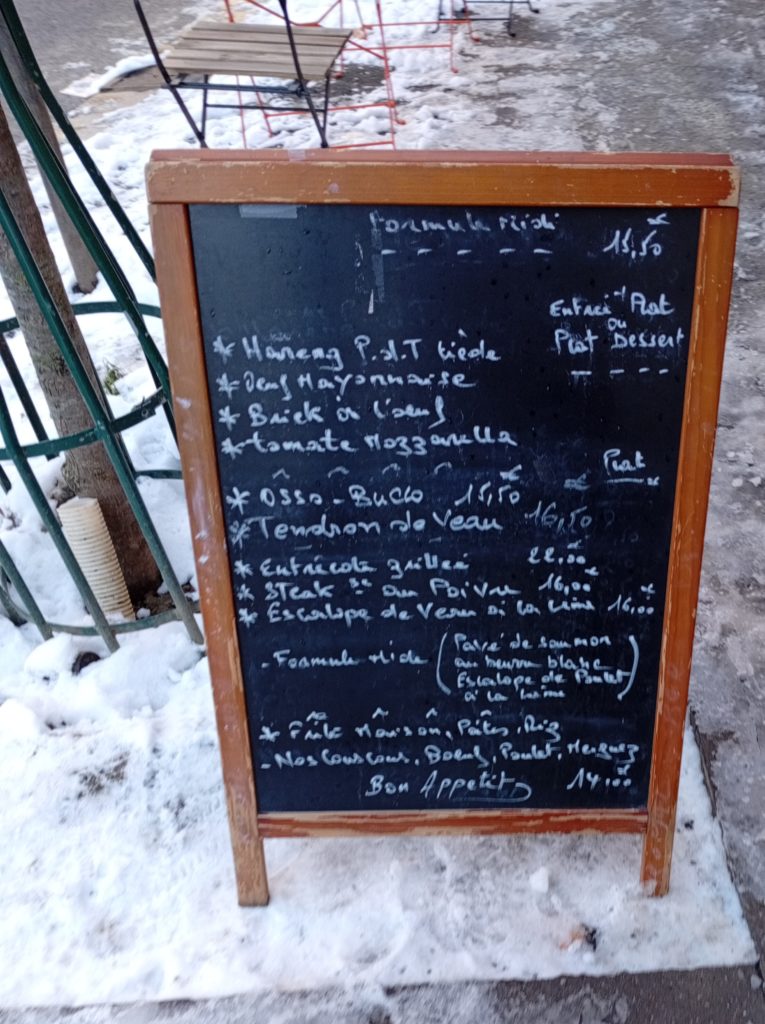 Formule Midi
15,50 €
Entrée + Plat
ou
Plat Dessert
* Hareng P.d.T tiède
* Oeuf Mayonnaise
* Brick à l'oeuf
* tomate Mozzarella
Plat
* Osso-Bucco 15,50 €
* Tendron de Veau 16,50 €
* Entrecote grillée 22,00 €
* Steak au Poivre 16,00 €
* Escalope de Veau à la crème 16,00 €
- Formule Midi (Pavé de saumon
au beurre blanc
Escalope de Poulet
à la crème)
* Frite Maison, Pâtes, Riz
- Nos Couscous, Boeuf, Poulet, Merguez
Bon Appetit 14,00 €